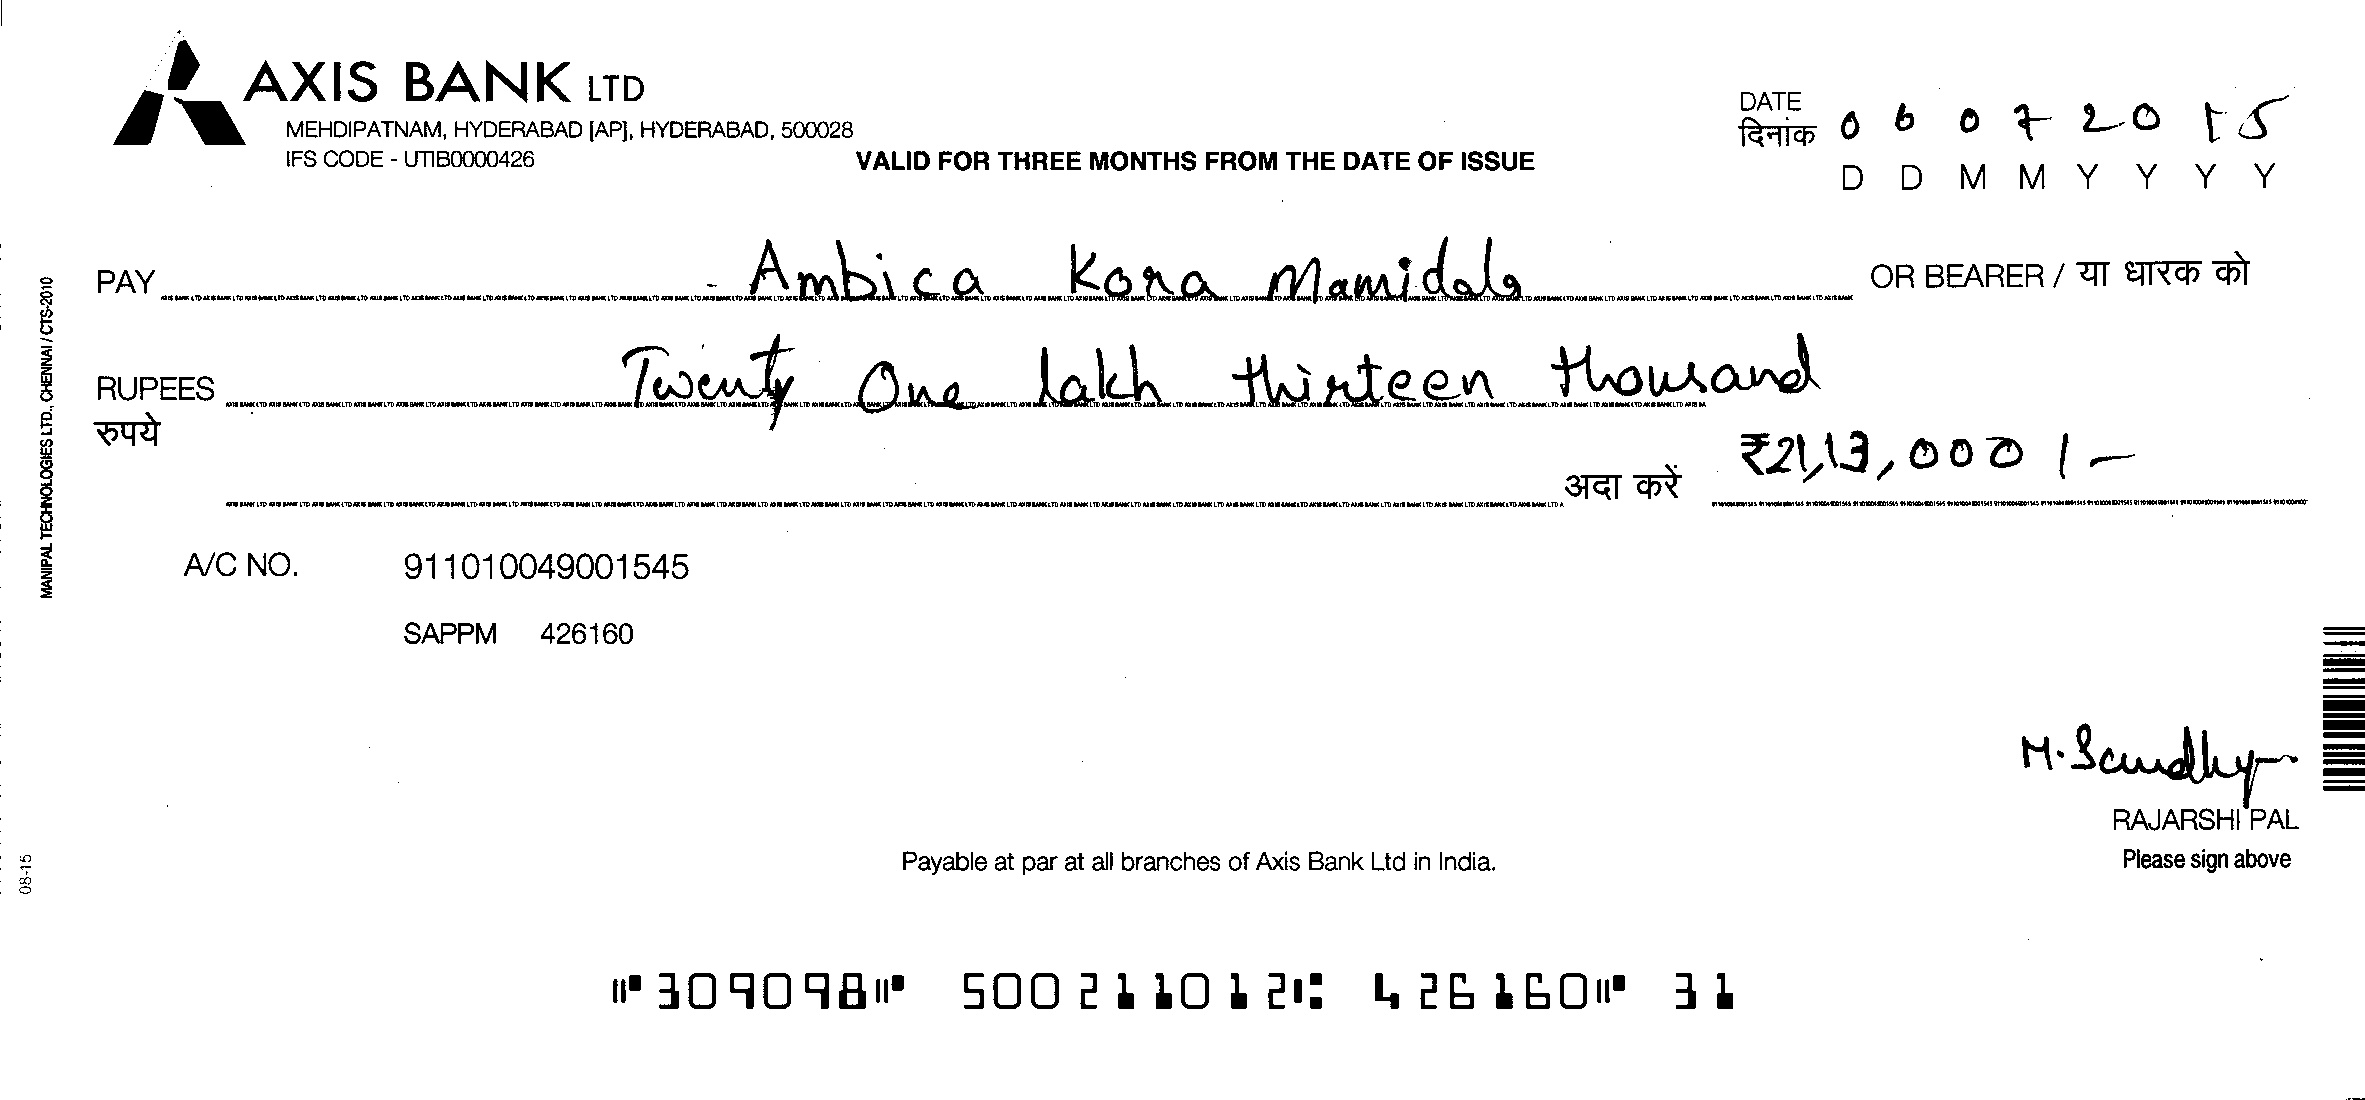 AXIS BANK LTD
MEHDIPATNAM, HYDERABAD [AP], HYDERABAD, 500028
IFS CODE - UTIB0000426
VALID FOR THREE MONTHS FROM THE DATE OF ISSUE
DATE
दिनांक 0 6 0 7 2 0 1 5
D D M M Y Y Y Y
PAY Ambica Kora Mamidala OR BEARER / या धारक को
RUPEES Twenty One lakh thirteen thousand
रुपये
अदा करें ₹21,13,000/-
A/C NO. 911010049001545
SAPPM 426160
M. Sandhya
RAJARSHI PAL
Please sign above
Payable at par at all branches of Axis Bank Ltd in India.
⑈309098⑈ 500211012⑆ 426160⑈ 31
MANIPAL TECHNOLOGIES LTD., CHENNAI / CTS-2010
08-15